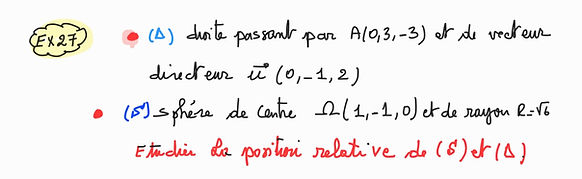 EX27 • (Δ) droite passant par A(0,3,-3) et de vecteur
directeur u⃗ (0,-1,2)
• (S) sphére de centre Ω(1,-1,0) et de rayon R=√6
Etudier la position relative de (S) et (Δ)